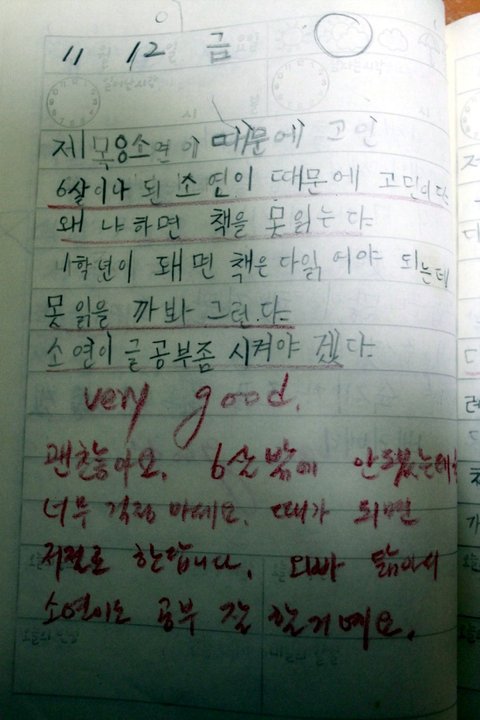 11월 12일 금
제목 소연이 때문에 고민
6살이나 된 소연이 때문에 고민이다.
왜냐하면 책을 못읽는다
1학년이 돼면 책은 다읽어야 되는데
못읽을 까봐 그런다.
소연이 글공부좀 시켜야 겠다.
very good.
괜찮아요. 6살밖에 안됐는데..
너무 걱정 마세요. 때가 되면
저절로 한답니다. 오빠 닮아서
소연이도 공부 잘 할거예요.